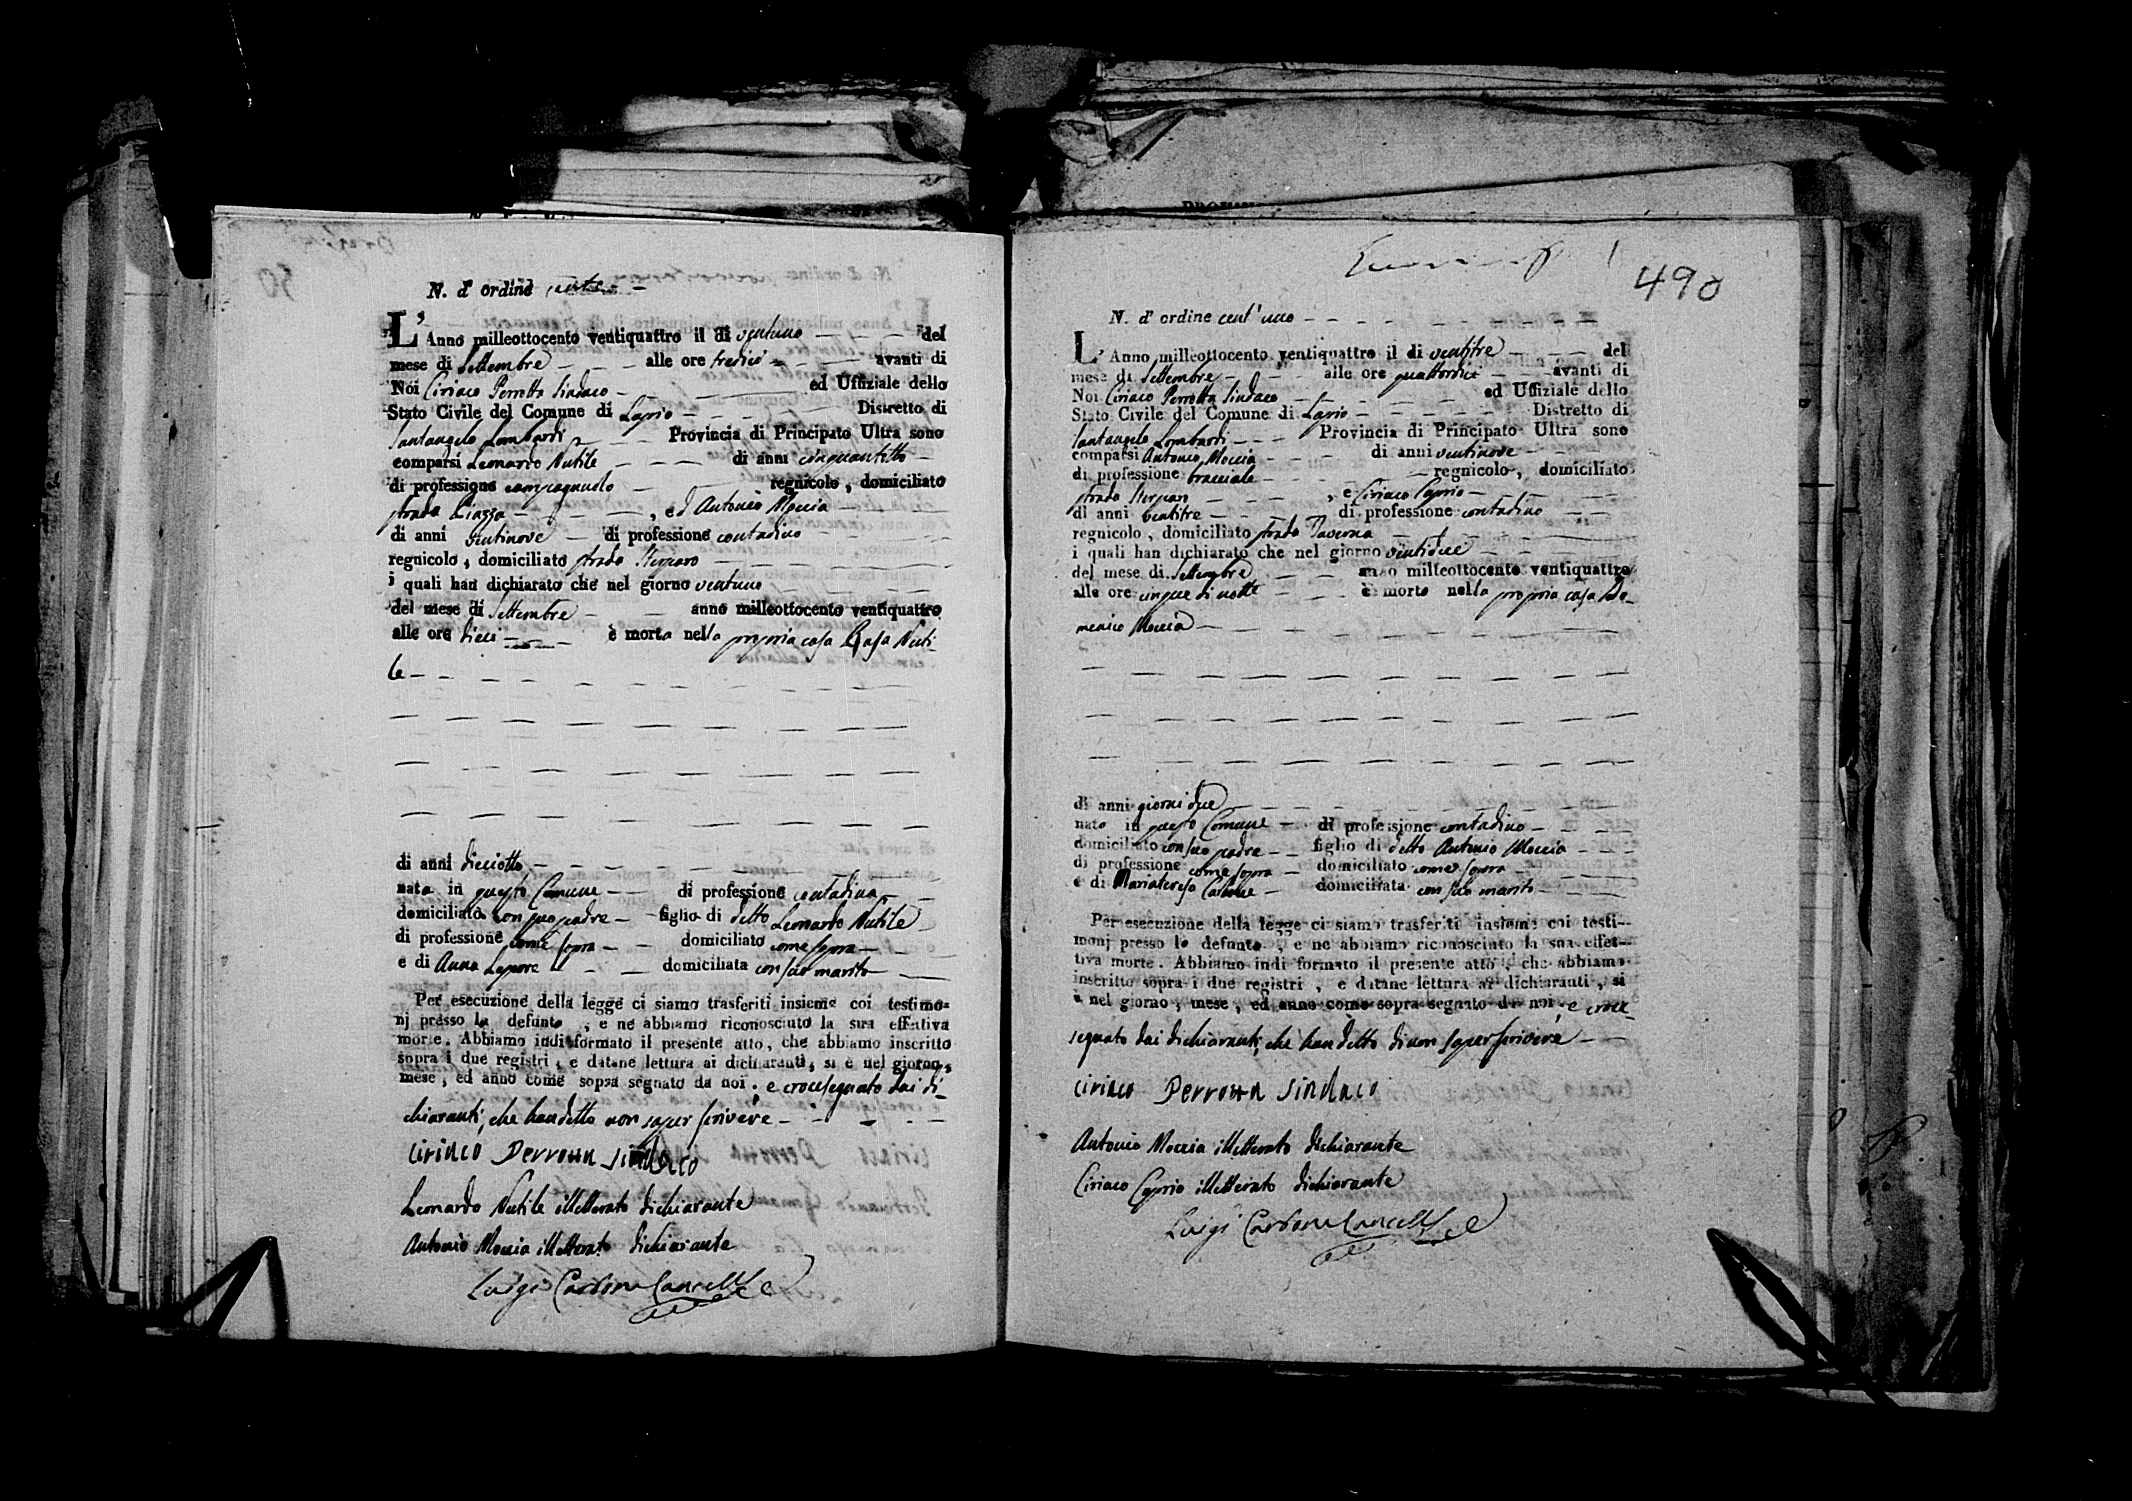 N. d' ordine cento
L' Anno milleottocento ventiquattro il di ventuno del
mese di Settembre alle ore tredici avanti di
Noi Ciriaco Perrotta Sindaco ed Uffiziale dello
Stato Civile del Comune di Lapio Distretto di
Santangelo Lombardi Provincia di Principato Ultra sono
comparsi Leonardo Nutile di anni cinquantotto
di professione campagnuolo regnicolo, domiciliato
strada Piazza, ed Antonio Moccia
di anni ventinove di professione contadino
regnicolo, domiciliato strada
i quali han dichiarato che nel giorno ventuno
del mese di Settembre anno milleottocento ventiquattro
alle ore dieci è morta nella propria casa Rosa Nuti-
le
di anni dieciotto
nata in questo Comune di professione contadina
domiciliata con suo padre figlio di detto Leonardo Nutile
di professione come sopra domiciliato come sopra
e di Anna Lepore domiciliata con suo marito
Per esecuzione della legge ci siamo trasferiti insieme coi testimo-
nj presso la defunta, e ne abbiamo riconosciuto la sua effettiva
morte. Abbiamo indi formato il presente atto, che abbiamo inscritto
sopra i due registri, e datane lettura ai dichiaranti, si è nel giorno,
mese, ed anno come sopra segnato da noi. e crocesegnato dai di-
chiaranti, che han detto non saper scrivere
Ciriaco Perrotta Sindaco
Leonardo Nutile illetterato dichiarante
Antonio Moccia illetterato dichiarante
Luigi Carbone Cancelle
490
N. d' ordine cent'uno
L' Anno milleottocento ventiquattro il di ventitre del
mese di Settembre alle ore quattordici avanti di
Noi Ciriaco Perrotta Sindaco ed Uffiziale dello
Stato Civile del Comune di Lapio Distretto di
Santangelo Lombardi Provincia di Principato Ultra sono
comparsi Antonio Moccia di anni ventinove
di professione bracciale regnicolo, domiciliato
strada, e Ciriaco Caprio
di anni ventitre di professione contadino
regnicolo, domiciliato strada Taverna
i quali han dichiarato che nel giorno ventidue
del mese di Settembre anno milleottocento ventiquattro
alle ore cinque di notte è morto nella propria casa Do-
menico Moccia
di anni giorni due
nato in questo Comune di professione contadino
domiciliato con suo padre figlio di detto Antonio Moccia
di professione come sopra domiciliato come sopra
e di Mariateresa Carbone domiciliata con suo marito
Per esecuzione della legge ci siamo trasferiti insieme coi testi-
monj presso lo defunto, e ne abbiamo riconosciuto la sua effet-
tiva morte. Abbiamo indi formato il presente atto, che abbiamo
inscritto sopra i due registri, e datane lettura ai dichiaranti, si
è nel giorno, mese, ed anno come sopra segnato da noi, e croce-
segnato dai dichiaranti, che han detto di non saper scrivere
Ciriaco Perrotta Sindaco
Antonio Moccia illetterato dichiarante
Ciriaco Caprio illetterato dichiarante
Luigi Carbone Cancelle